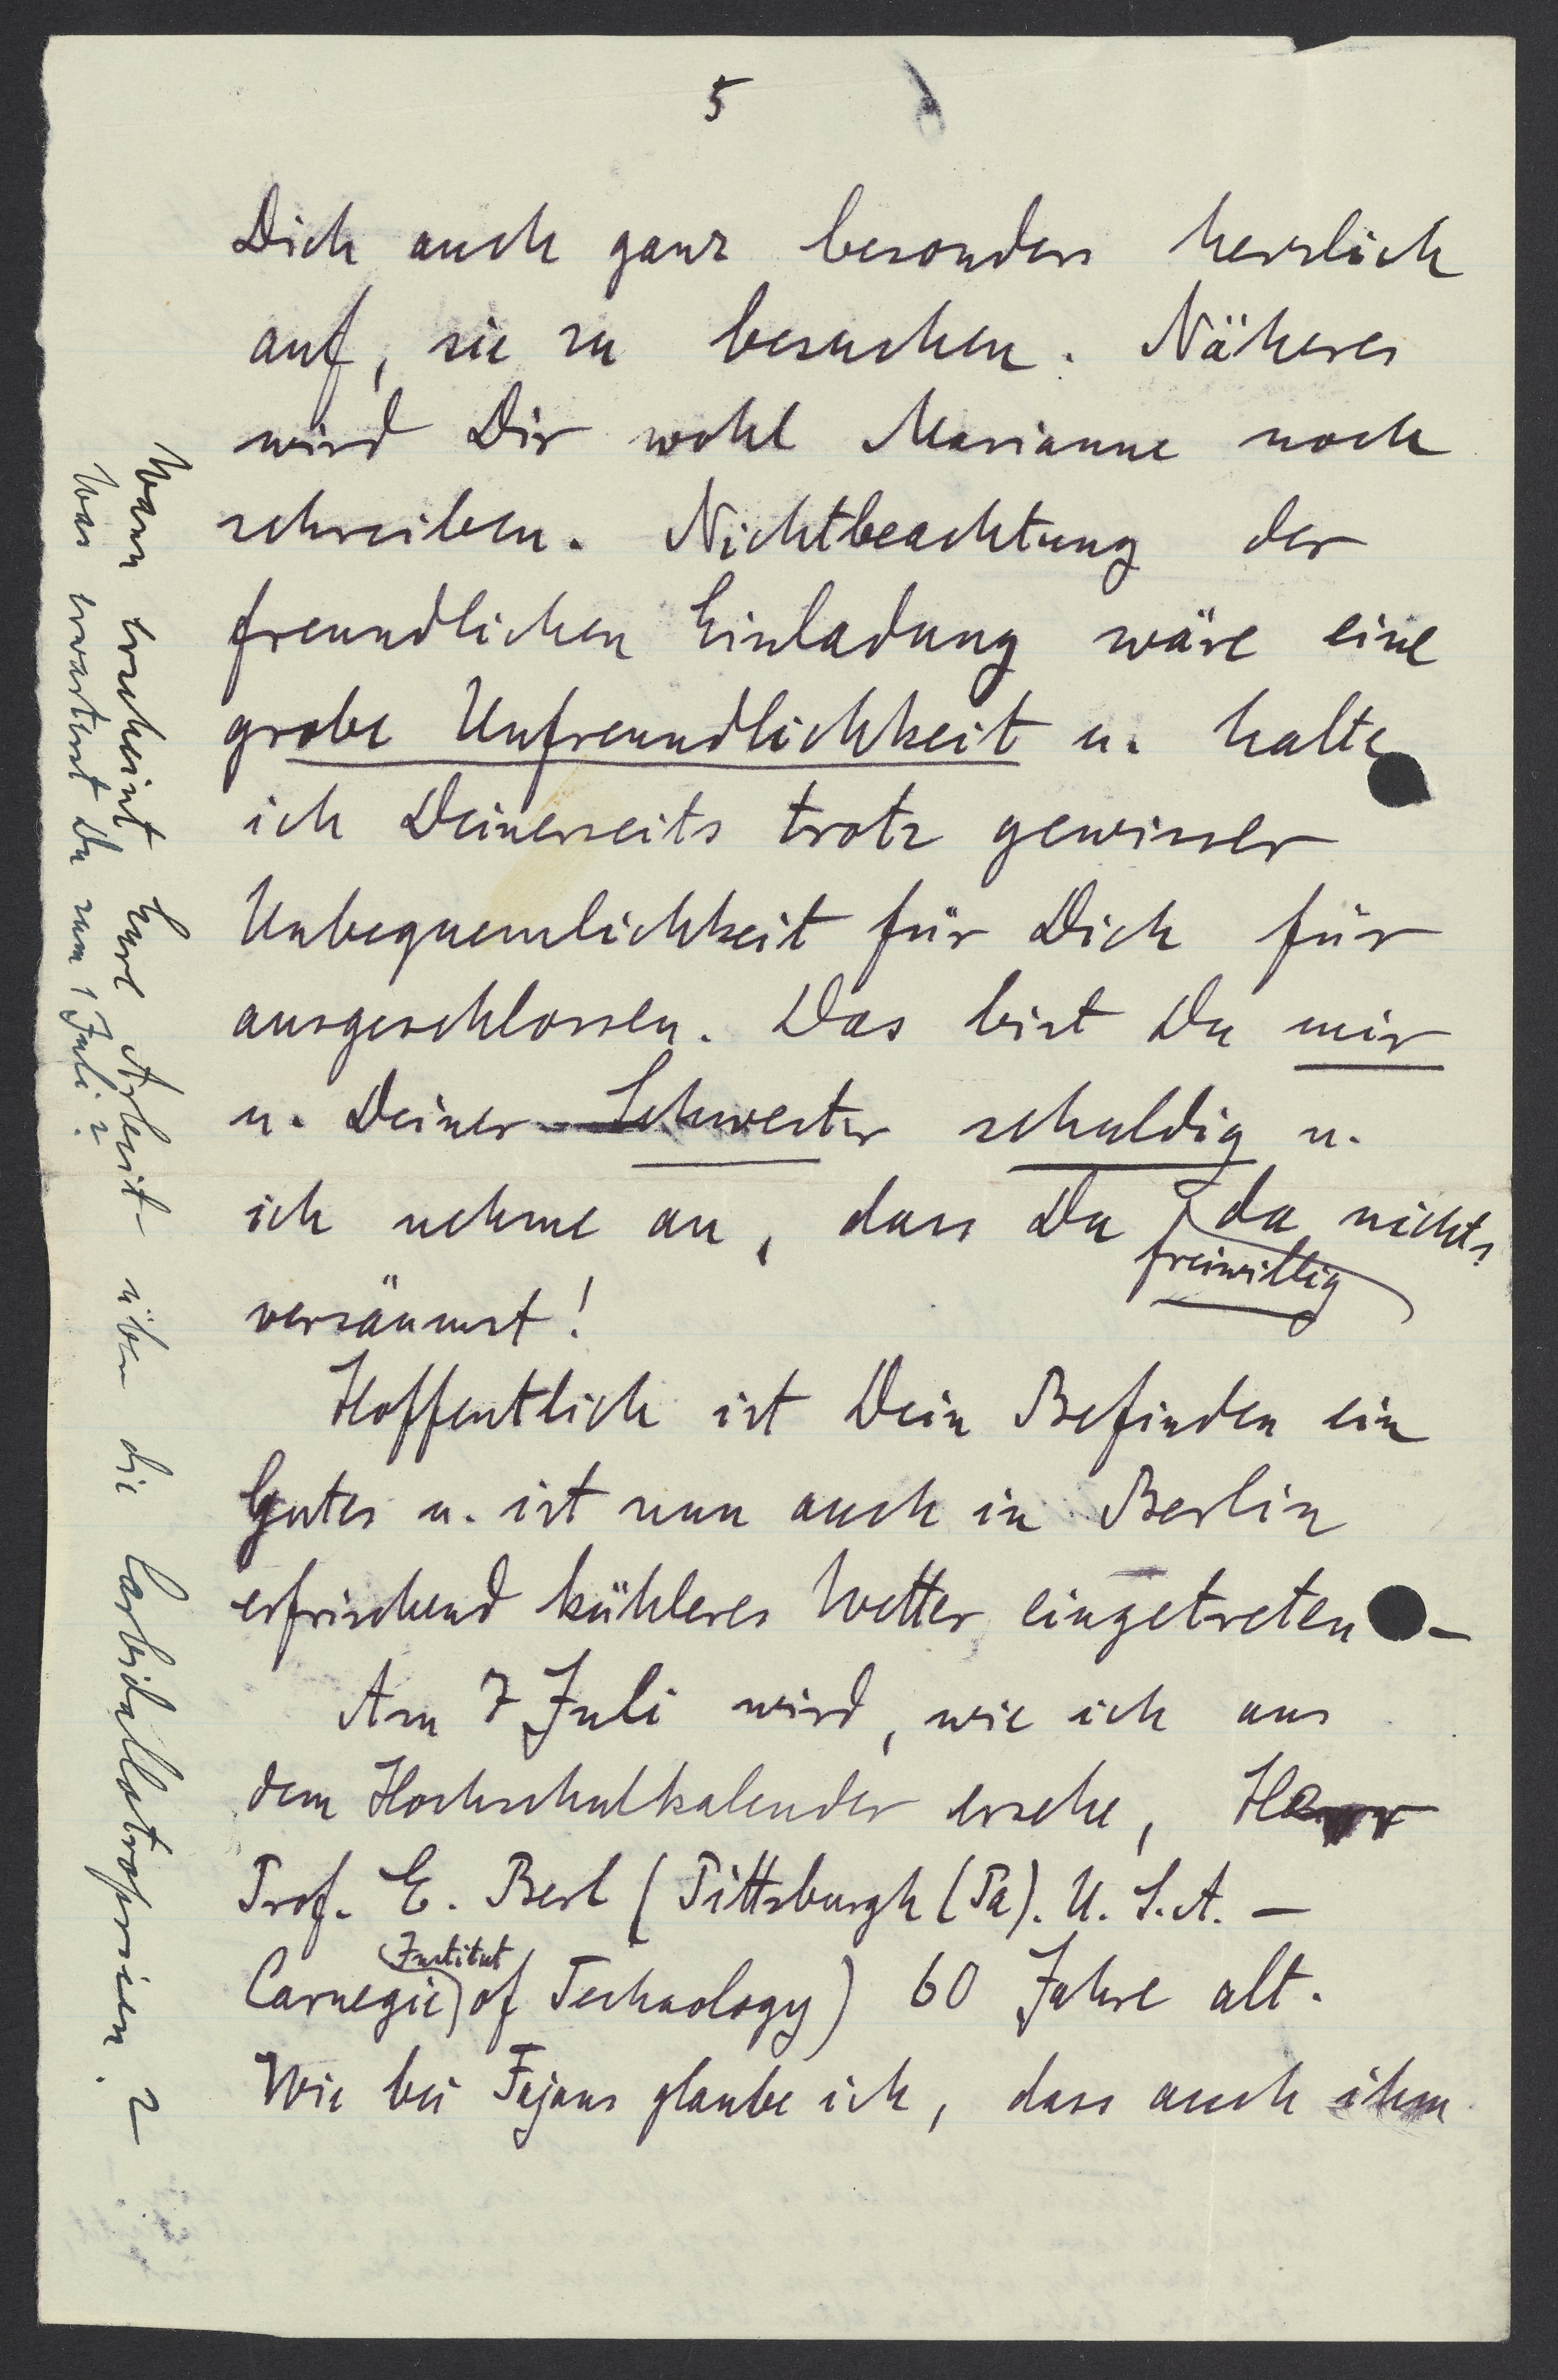 5
Dich auch ganz besonders herzlich
auf, sie zu besuchen. Näheres
wird Dir wohl Marianne noch
schreiben. Nichtbeachtung der
freundlichen Einladung wäre eine
grobe Unfreundlichkeit u. halte
ich Deinerseits trotz gewisser
Unbequemlichkeit für Dich für
ausgeschlossen. Das bist Du mir
u. Deiner Schwester schuldig u.
ich nehme an, dass Du da nichts
freiwillig
versäumst!
Hoffentlich ist Dein Befinden ein
Gutes u. ist nun auch in Berlin
erfrischend kühleres Wetter eingetreten –
Am 7 Juli wird, wie ich aus
dem Hochschulkalender ersehe, Herr
Prof. E. Berl (Pittsburgh (Pa). U.S.A. –
Institut
Carnegie of Technology) 60 Jahre alt.
Wie bei Fajans glaube ich, dass auch ihm
Wann erscheint Eure Arbeit über die Carbidallotropien?
Was erwartest Du zum 1 Juli?